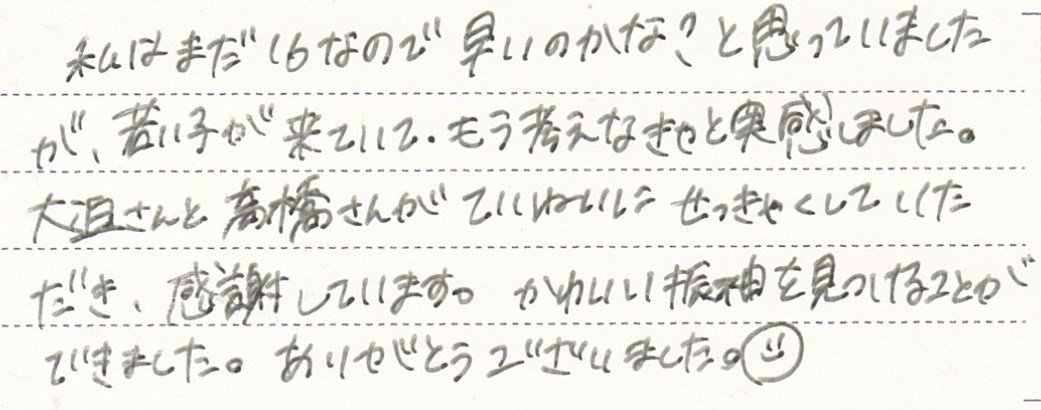 私はまだ16なので早いのかな?と思っていました
が、若い子が来ていて、もう考えなきゃと実感しました。
大沮さんと高橋さんがていねいにせっきゃくしていた
だき、感謝しています。かわいい振袖を見つけることが
できました。ありがとうございました。